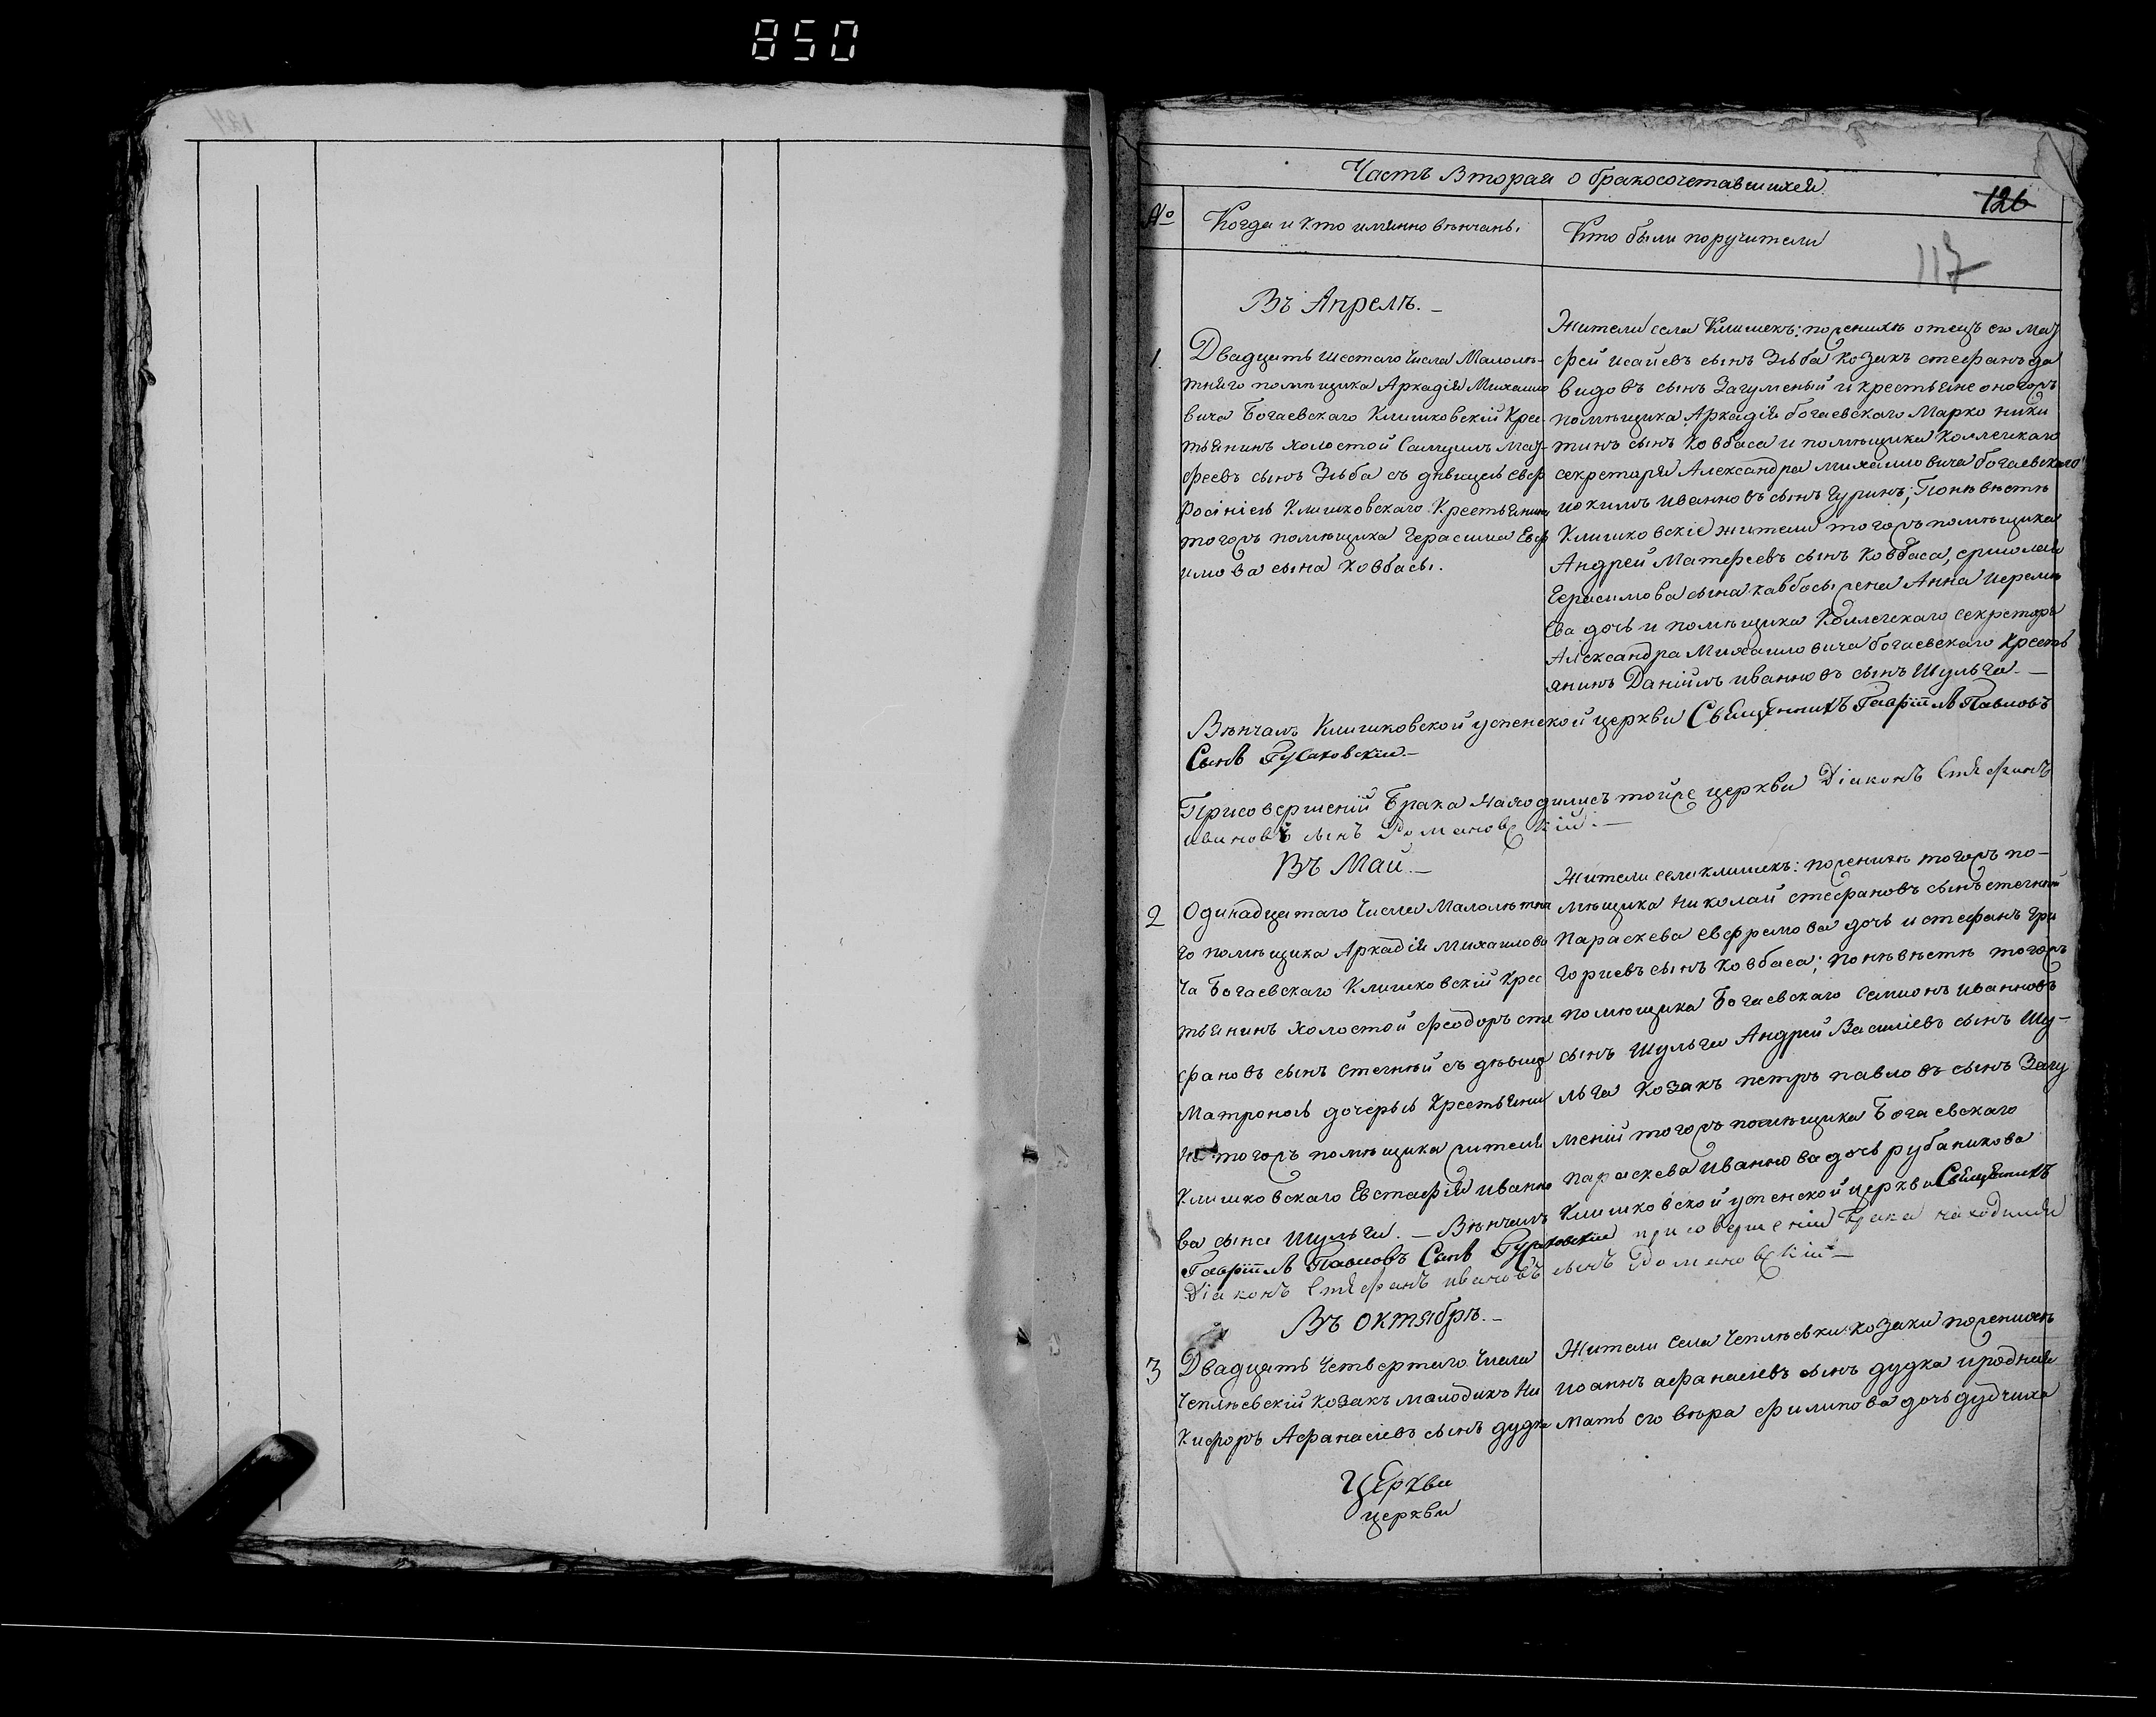 850
Часть Вторая о бракосочетавшихся
126
№
Когда и кто имянно венчанъ,
Кто были поручители
117
Въ Апрелѣ. —
1
Двадцять шестаго числа Малолѣ-
тняго помѣщика Аркадія Михаило
вича Богаевскаго Клишковскій Крес-
тьянинъ холостой Самуилъ Мат-
феевъ сынъ Зѣба съ дѣвицею Евф
росініею Клишковскаго Крестьянина
тогожъ помѣщика Герасима Евф
имова сына Ковбасы.
Жители села Клишекъ: поженихѣ отецъ его Мат
фей исаіевъ сынъ Зѣба козакъ стефанъ да
видовъ сынъ Загуменый и крестьяне оногожъ
помѣщика Аркадія богаевскаго Марко ники
тинъ сынъ Ковбаса и помѣщика Коллежкаго
секретаря Александра михаиловича богаевскаго
иокимъ ивановъ сынъ Гуринъ; Поневѣстѣ
Клишковскіе жители тогожъ помѣщика
Андрей Матфеевъ сынъ Ковбаса, ермолая
Герасимова сына кавбасы жена Анна иереми
ева дочь и помѣщика Коллежкаго секретаря
Александра Михаиловича богаевскаго Кресть
янинъ Даніилъ ивановъ сынъ Шульга. —
Вѣнчалъ Клишковской успенской церкви Священникъ Гавріилъ Павловъ
Сынъ Гусаковскій —
Присовершеніи Брака находились тойже церкви Діаконъ Стефанъ
ивановъ сынъ Романовскій. —
Въ Маи. —
2
Одинадцатаго числа Малолѣтня
го помѣщика Аркадія Михаилови
ча Богаевскаго Клишковскій Крес
тьянинъ холостой феодоръ сте
фановъ сынъ стегнѣй съ дѣвиц
Матроною дочерью Крестьяни
на тогожъ помѣщика жителя
Клишковскаго Евстафія ивано
ва сына Шульги. — Вѣнчалъ Клишковской успенской церкви Священникъ
Жители села клишекъ: поженихѣ тогожъ по-
мѣщика Николай стефановъ сынъ стегнѣй
параскева евфремова дочь и стефанъ гри
горіевъ сынъ Ковбаса; поневѣстѣ тогожъ
помѣщика Богаевскаго Семионъ ивановъ
сынъ Шульга Андрей Василіевъ сынъ Шу-
льга козакъ петръ павловъ сынъ Загу
меній тогожъ помѣщика Богаевскаго
параскева иванова дочь рубаникова
Гавріилъ Павловъ Сынъ Гусаковскій присовершеніи Брака находился
Діаконъ Стефанъ ивановъ сынъ Романовскій —
Въ октябрѣ. —
3
Двадцять четвертаго числа
Чеплѣевскій козакъ молодикъ Ни
кифоръ Афанасіевъ сынъ дудка
Жители села Чеплѣевки козаки поженихѣ
иоаннъ афанасіевъ сынъ дудка иродная
мать его вѣра филипова дочь дудчиха
Церкви
церкви